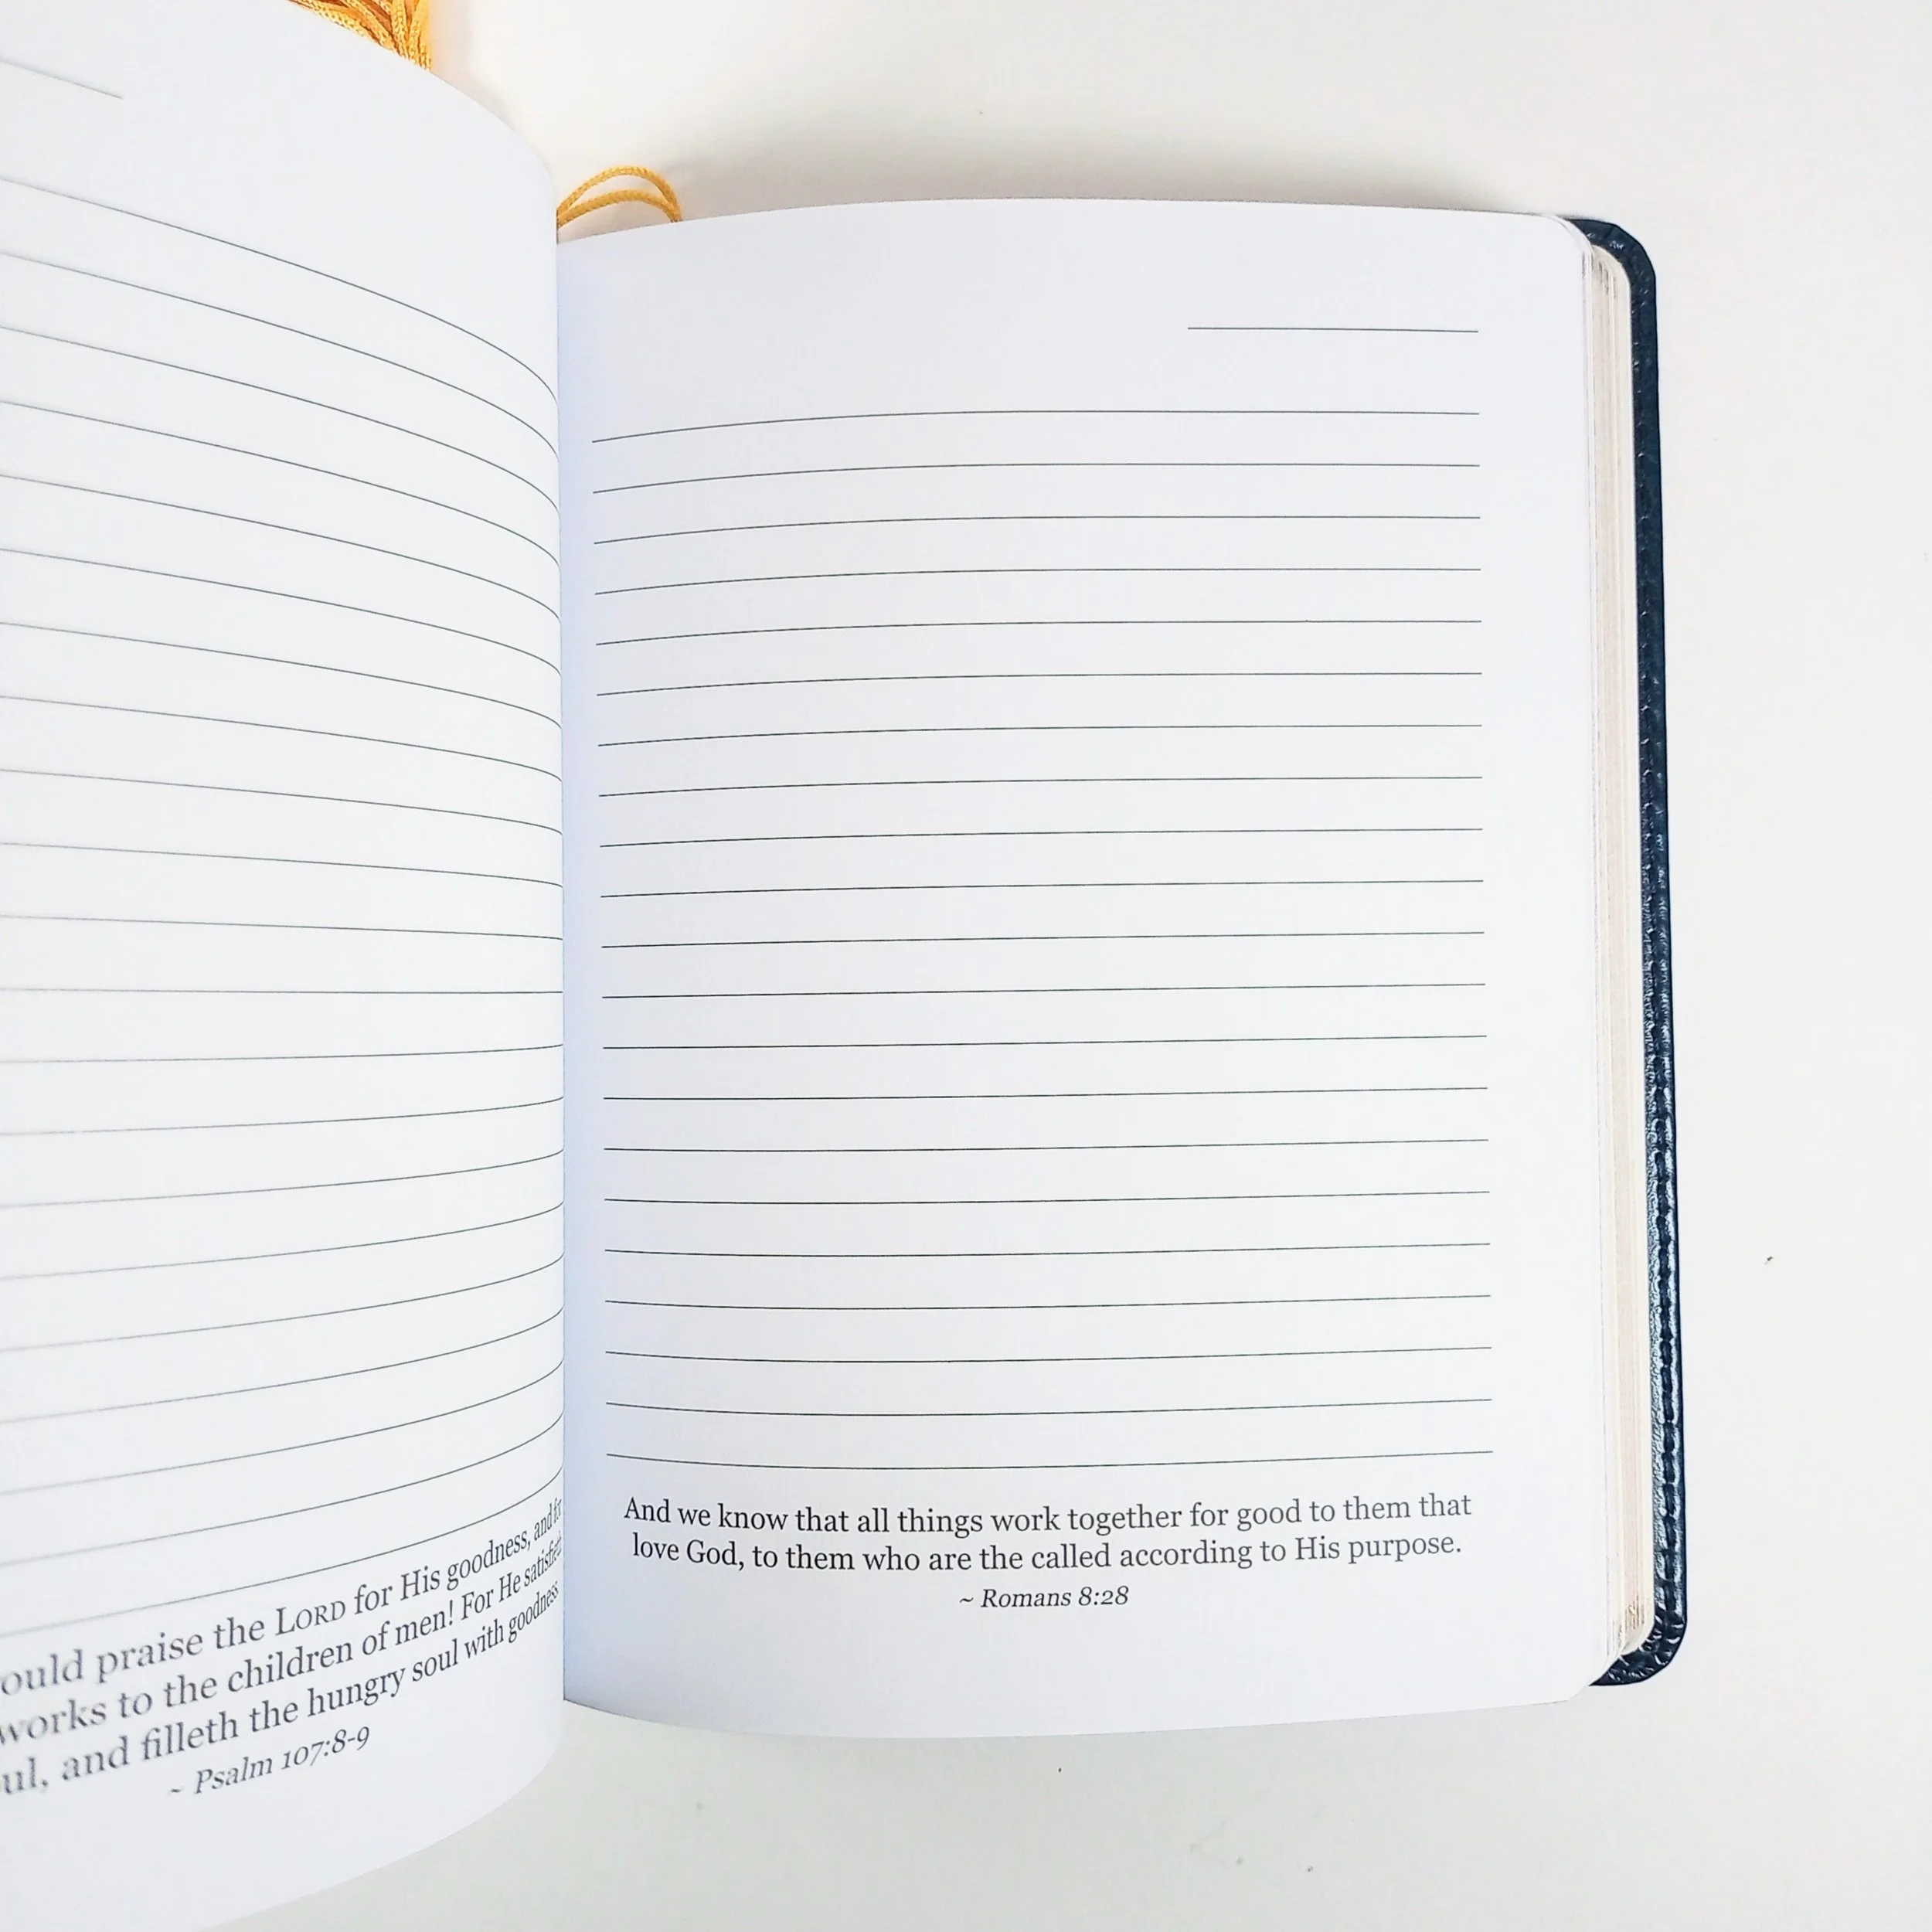 ould praise the LORD for His goodness, and for
works to the children of men! For He satisfieth
ul, and filleth the hungry soul with goodness.
~ Psalm 107:8-9
And we know that all things work together for good to them that
love God, to them who are the called according to His purpose.
~ Romans 8:28